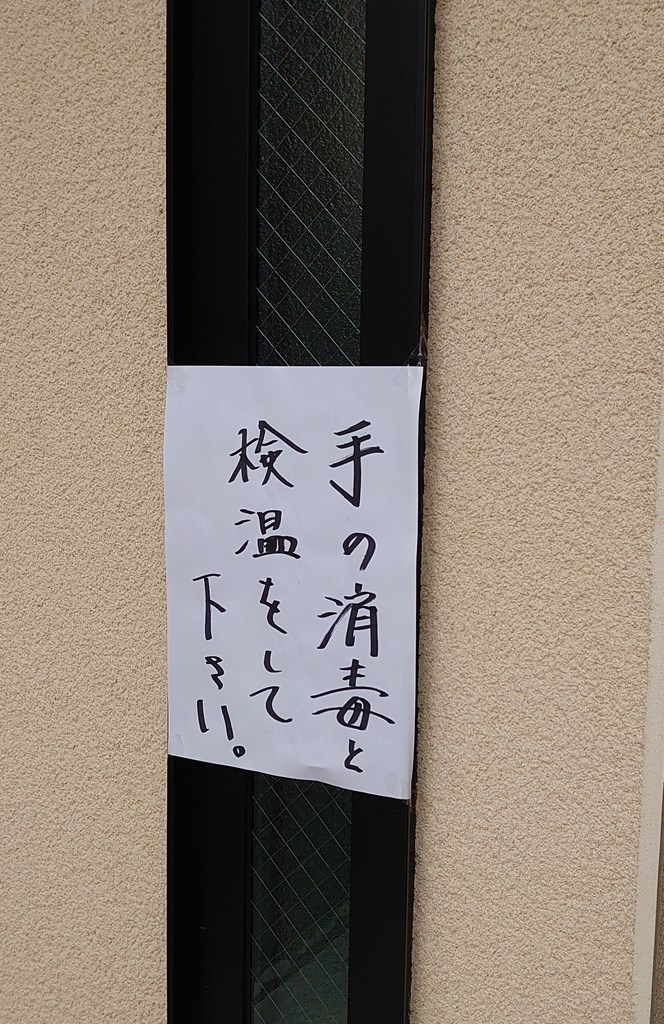 手の消毒と
検温をして
下さい。